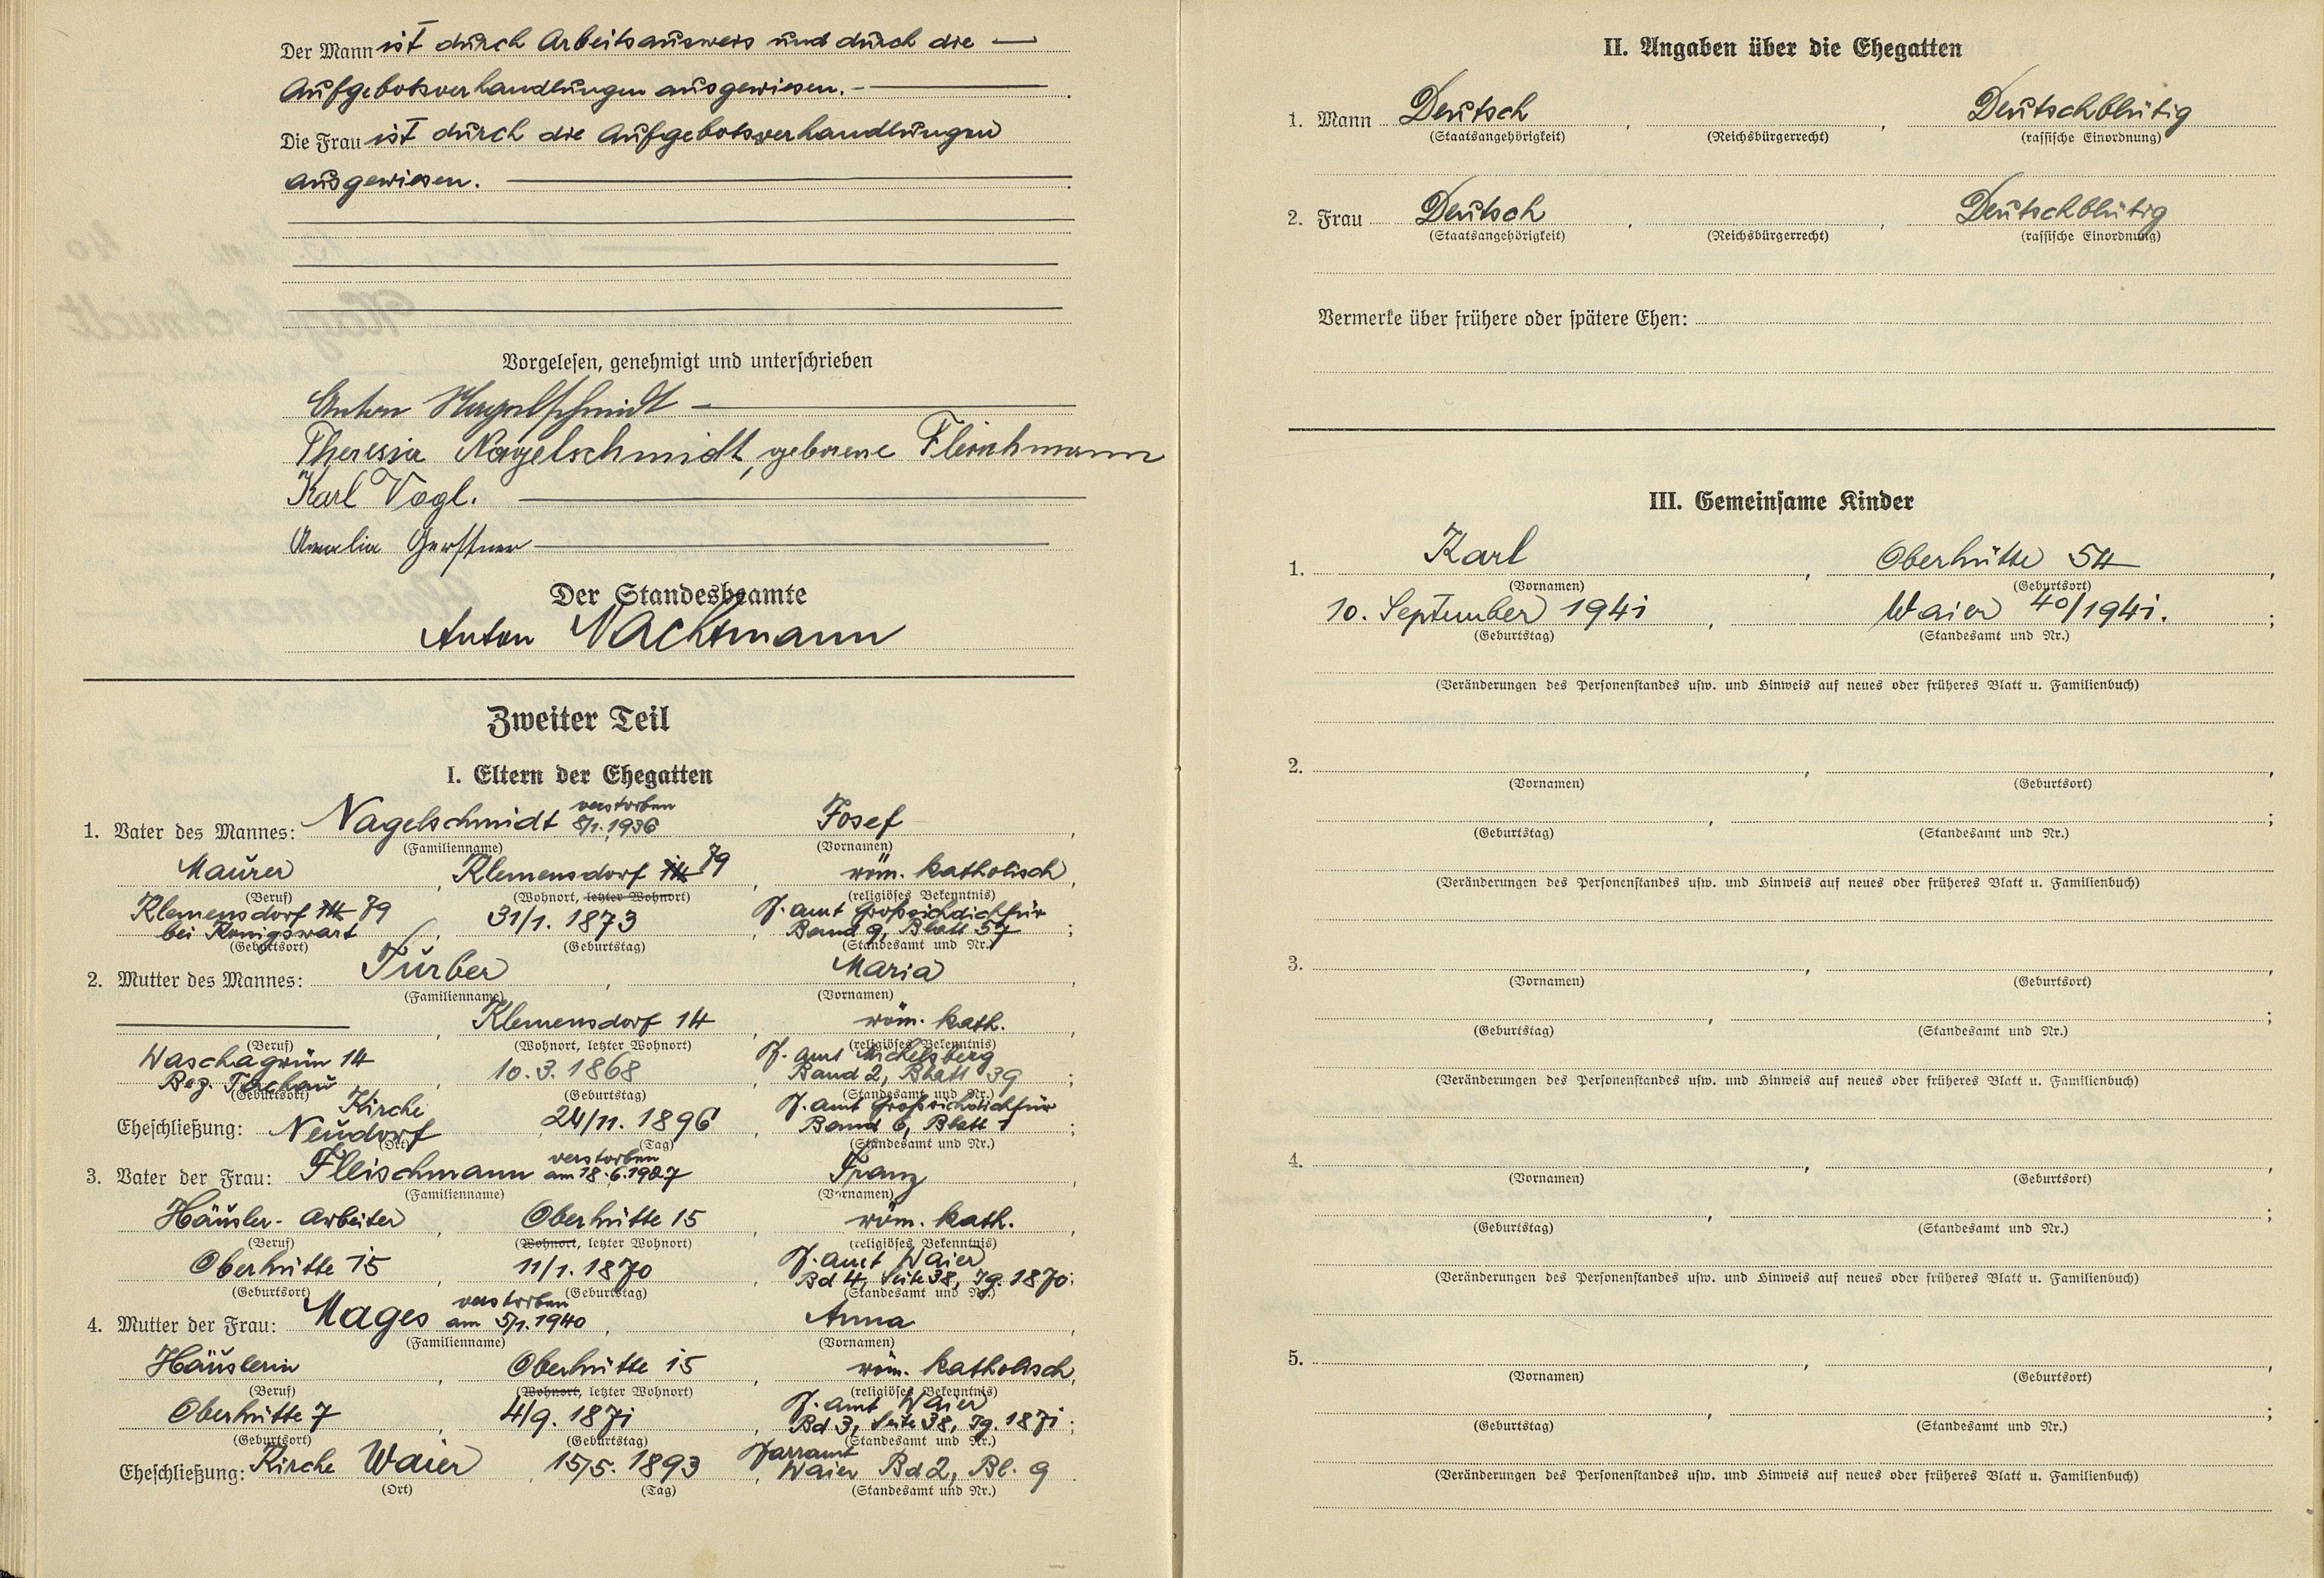 Der Mann ist durch Arbeitsausweis und durch die —
Aufgebotsverhandlungen ausgewiesen. —
Die Frau ist durch die Aufgebotsverhandlungen
ausgewiesen. —
Vorgelesen, genehmigt und unterschrieben
Anton Nagelschmidt —
Theresia Nagelschmidt, geborene Fleischmann
Karl Vogl. —
Amalia Gerstner —
Der Standesbeamte
Anton Nachtmann
Zweiter Teil
I. Eltern der Ehegatten
verstorben
1. Vater des Mannes: Nagelschmidt 8/1. 1936 Josef,
(Familienname) (Vornamen)
Maurer, Klemensdorf 79, röm. katholisch,
(Beruf) (Wohnort, letzter Wohnort) (religiöses Bekenntnis)
Klemensdorf 79 31/1. 1873 Pf. amt Großsichdichfür
bei Königswart, , Band 9, Blatt 57;
(Geburtsort) (Geburtstag) (Standesamt und Nr.)
2. Mutter des Mannes: Türber, Maria,
(Familienname) (Vornamen)
—, Klemensdorf 14, röm. kath.,
(Beruf) (Wohnort, letzter Wohnort) (religiöses Bekenntnis)
Waschagrün 14 Pf. amt Michelsberg
Bez. Tachau, 10. 3. 1868, Band 2, Blatt 39;
(Geburtsort) (Geburtstag) (Standesamt und Nr.)
Kirche Pf. amt Großsichdichfür
Eheschließung: Neudorf, 24/11. 1896, Band 6, Blatt 1;
(Ort) (Tag) (Standesamt und Nr.)
verstorben
3. Vater der Frau: Fleischmann am 18. 6. 1927 Franz,
(Familienname) (Vornamen)
Häusler- Arbeiter, Oberhütte 15, röm. kath.,
(Beruf) (Wohnort, letzter Wohnort) (religiöses Bekenntnis)
Pf. amt Waier
Oberhütte 15, 11/1. 1870, Bd 4, Seite 38, Jg. 1870;
(Geburtsort) (Geburtstag) (Standesamt und Nr.)
verstorben
4. Mutter der Frau: Mages am 5/1. 1940, Anna,
(Familienname) (Vornamen)
Häuslerin, Oberhütte 15, röm. katholisch,
(Beruf) (Wohnort, letzter Wohnort) (religiöses Bekenntnis)
Pf. amt Waier
Oberhütte 7, 4/9. 1871, Bd 3, Seite 38, Jg. 1871;
(Geburtsort) (Geburtstag) (Standesamt und Nr.)
Pfarramt
Eheschließung: Kirche Waier, 15/5. 1893, Waier Bd 2, Bl. 9
(Ort) (Tag) (Standesamt und Nr.)
II. Angaben über die Ehegatten
1. Mann Deutsch, , Deutschblütig
(Staatsangehörigkeit) (Reichsbürgerrecht) (rassische Einordnung)
2. Frau Deutsch, , Deutschblütig
(Staatsangehörigkeit) (Reichsbürgerrecht) (rassische Einordnung)
Vermerke über frühere oder spätere Ehen:
III. Gemeinsame Kinder
1. Karl, Oberhütte 54,
(Vornamen) (Geburtsort)
10. September 1941, Waier 40/1941.;
(Geburtstag) (Standesamt und Nr.)
(Veränderungen des Personenstandes usw. und Hinweis auf neues oder früheres Blatt u. Familienbuch)
2. , ,
(Vornamen) (Geburtsort)
, ;
(Geburtstag) (Standesamt und Nr.)
(Veränderungen des Personenstandes usw. und Hinweis auf neues oder früheres Blatt u. Familienbuch)
3. , ,
(Vornamen) (Geburtsort)
, ;
(Geburtstag) (Standesamt und Nr.)
(Veränderungen des Personenstandes usw. und Hinweis auf neues oder früheres Blatt u. Familienbuch)
4. , ,
(Vornamen) (Geburtsort)
, ;
(Geburtstag) (Standesamt und Nr.)
(Veränderungen des Personenstandes usw. und Hinweis auf neues oder früheres Blatt u. Familienbuch)
5. , ,
(Vornamen) (Geburtsort)
, ;
(Geburtstag) (Standesamt und Nr.)
(Veränderungen des Personenstandes usw. und Hinweis auf neues oder früheres Blatt u. Familienbuch)